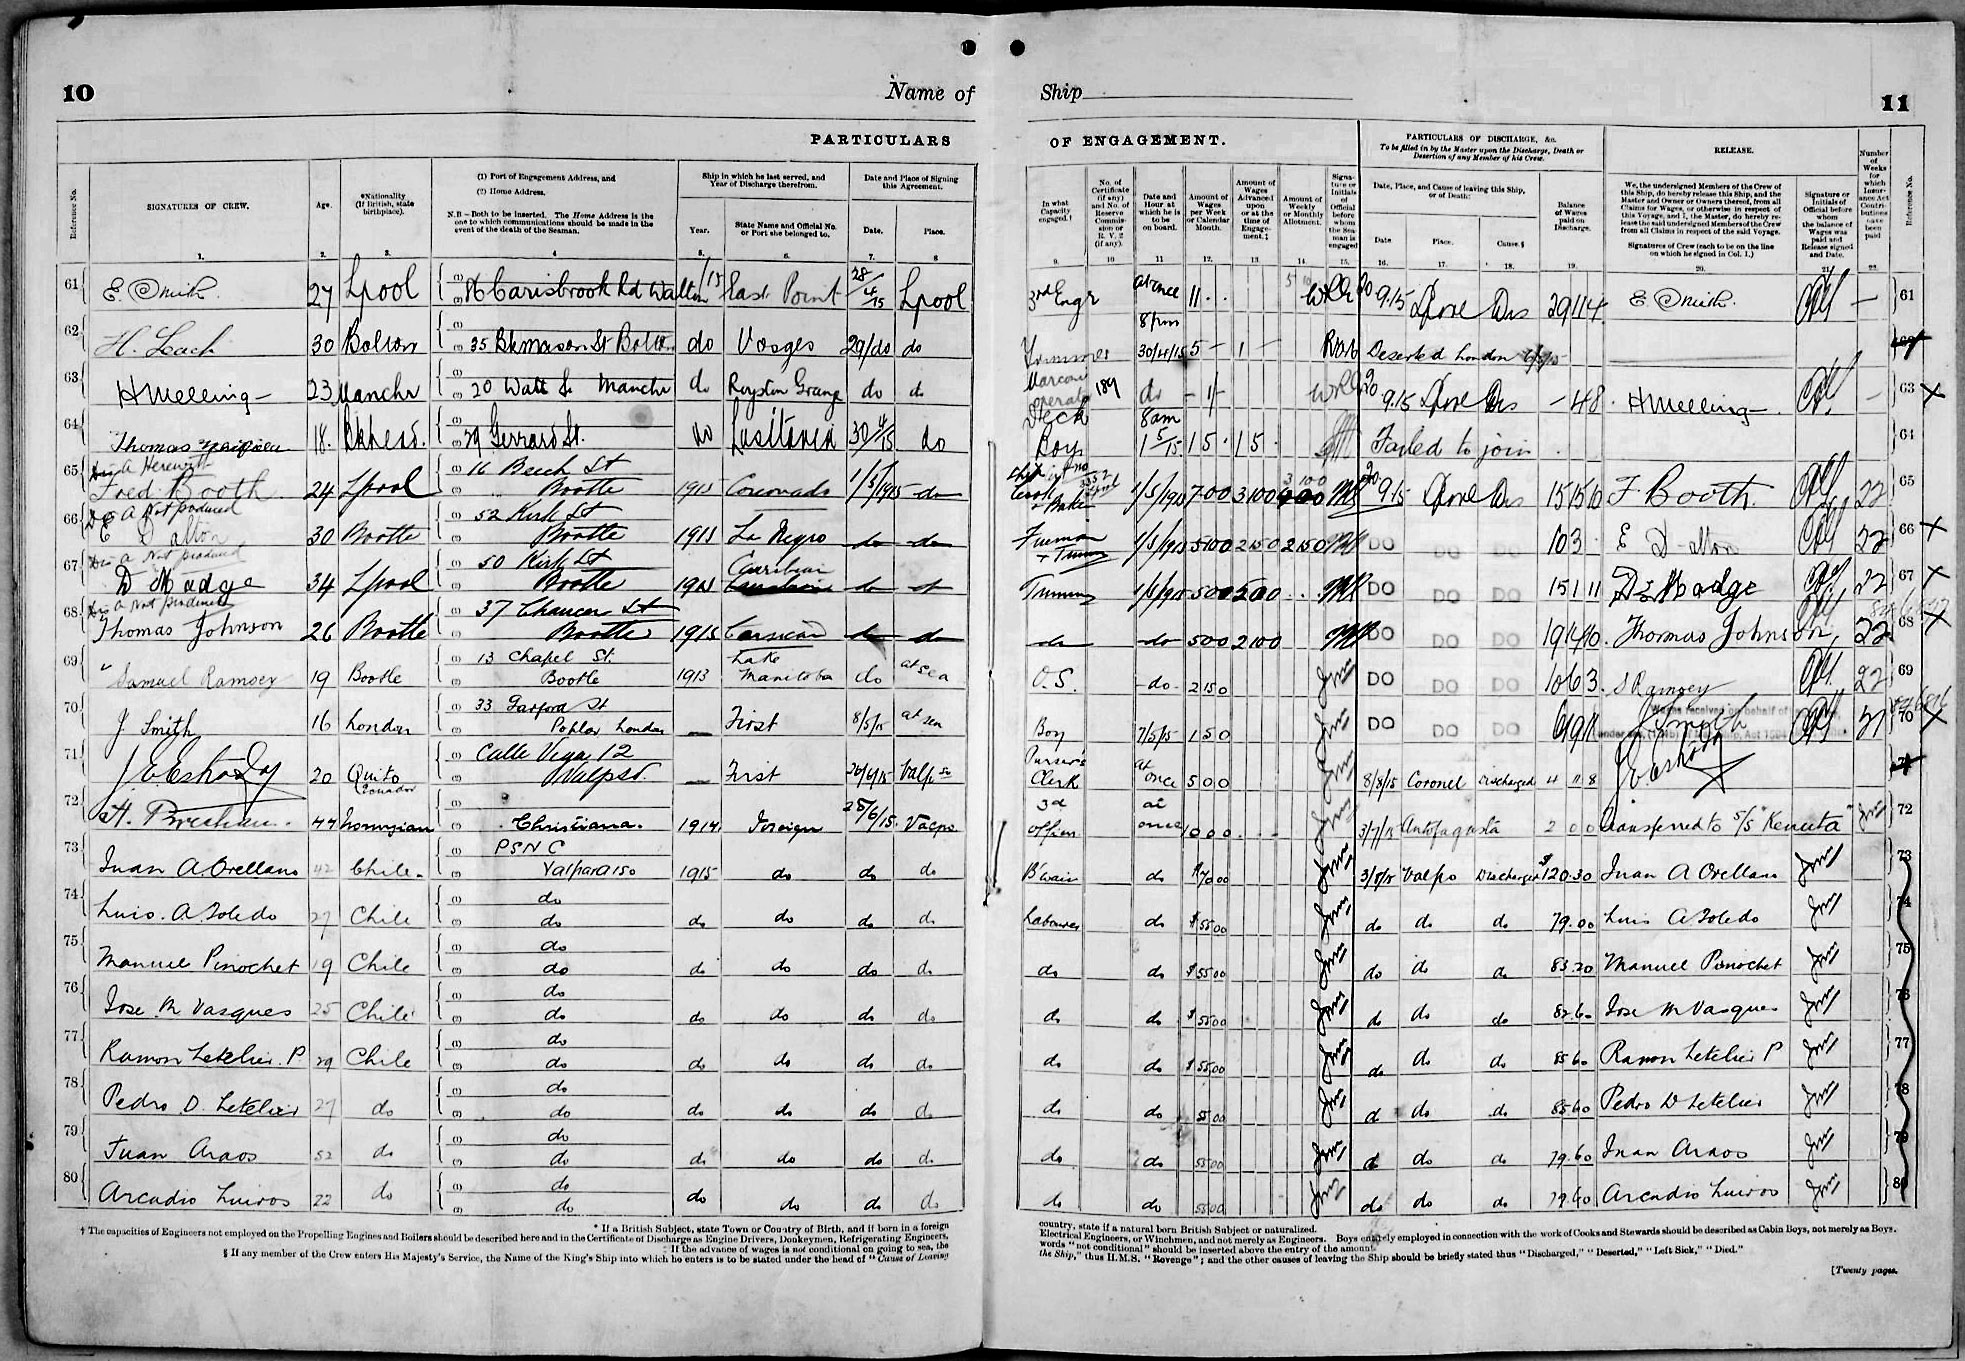 10
Name of
Ship
11
PARTICULARS
OF ENGAGEMENT.
PARTICULARS OF DISCHARGE, &c.
To be filled in by the Master upon the Discharge, Death or
Desertion of any Member of his Crew.
RELEASE.
Reference No.
SIGNATURES OF CREW.
Age.
*Nationality
(If British, state
birthplace).
(1) Port of Engagement Address, and
(2) Home Address.
N.B—Both to be inserted. The Home Address is the
one to which communications should be made in the
event of the death of the Seaman.
Ship in which he last served, and
Year of Discharge therefrom.
Year.
State Name and Official No.
or Port she belonged to.
Date and Place of Signing
this Agreement.
Date.
Place.
In what
Capacity
engaged.†
No. of
Certificate
(if any)
and No. of
Reserve
Commis-
sion or
R. V. 2
(if any).
Date and
Hour at
which he is
to be
on board.
Amount of
Wages
per Week
or Calendar
Month.
Amount of
Wages
Advanced
upon
or at the
time of
Engage-
ment.‡
Amount of
Weekly
or Monthly
Allotment.
Signa-
ture or
Initials
of
Official
before
whom
the Sea-
man is
engaged
Date, Place, and Cause of leaving this Ship,
or of Death:
Date
Place.
Cause.§
Balance
of Wages
paid on
Discharge.
We, the undersigned Members of the Crew of
this Ship, do hereby release this Ship, and the
Master and Owner or Owners thereof, from all
Claims for Wages, or otherwise in respect of
this Voyage, and I, the Master, do hereby re-
lease the said undersigned Members of the Crew
from all Claims in respect of the said Voyage.
Signatures of Crew (each to be on the line
on which he signed in Col. 1.)
Signature or
Initials of
Official before
whom
the balance of
Wages was
paid and
Release signed
and Date.
Number
of
Weeks
for
which
Insur-
ance Act
Contri-
butions
have
been
paid
Reference No.
1. 2. 3. 4 5. 6. 7. 8
9. 10 11. 12. 13. 14. 15. 16. 17. 18. 19. 20. 21. 22.
61 E. Smith. 27 Lpool 76 Carisbrook Rd Walton /15 East Point 28/4/15 Lpool
3rd Engr at once 11 . . 9.15 Lpool Dis 29 11 4 E. Smith. — 61
62 H. Leach 30 Bolton 35 St Bolton do Vosges 29/do do
Trimmer 8 pm 30/4/15 5 — 1 — Deserted London 6/5/15
63 H Melling 23 Manchr 20 Watt St Manchr do Royston Grange do do
Marconi operator 189 do — 1/- 20 9.15 Lpool Dis — 4 8 . H Melling — 63 X
64 Thomas 18. Bkhead. 29 Gerrard St. do Lusitania 30/4/15 do
Deck Boy 8am 1 5/15 1 5 . 1 5 . Failed to join 64
65 Fred Booth 24 Lpool 16 Beech St Bootle 1915 Coronado 1/5/1915 do
Cook & Baker 1/5/1915 7 00 3 10 0 20 9.15 Lpool Dis 15 15 10 F Booth. 22 65
66 Dis A Not produced
E Dalton 30 Bootle 52 Kirk St Bootle 1915 La Negro do do
Fireman + Trimmer 1/5/1915 5 10 0 2 15 0 2 15 0 DO DO DO 10 3 . E Dalton 22 66 X
67 Dis A Not produced
D Madge 34 Lpool 50 Kirk St Bootle 1914 Caribbean do do
Trimmer 1/5/1915 5 0 0 DO DO DO 15 1 11 D Madge 22 67 X
68 Dis A Not produced
Thomas Johnson 26 Bootle 37 Chaucer St Bootle 1915 Corsican do do
do do 5 0 0 2 10 0 DO DO DO 19 4 10. Thomas Johnson, 22 68 X
69 Samuel Ramsey 19 Bootle 13 Chapel St. Bootle 1913 Lake Manitoba do at sea
O.S. do. 2 15 0 DO DO DO 10 6 3. S Ramsey 22 69
70 J. Smith 16 London 33 Garford St Poplar London — First 8/5/15 at sea
Boy 7/5/15 1 5 0 DO DO DO 6 19 11 J Smith 70 X
71 20 Quito Ecuador Calle Vega 12 Valpso. — First 26/6/15 Valpso
Purser's Clerk at once 5 0 0 8/8/15 Coronel Discharged 4 11 8
72 44 Norwegian Christiana. 1914 Foreign 28/6/15. Valpo
3rd Officer at once 10 0 0 . 3/7/15 Antofagasta 2 0 0 Transferred to S/S "Kenuta" 72
73 Juan A Orellano 42 Chile. PSNC Valparaiso 1915 do do do
B'swain do $70 00 3/8/15 Valpo Discharged $120.30 Juan A Orellano 73
74 Luis. A. Toledo 27 Chile do do do do do do
Labourer do $55 00 do do do 79.00 Luis A Toledo 74
75 Manuel Pinochet 19 Chile do do do do do do
do do $55 00 do do do 83.20 Manuel Pinochet 75
76 Jose. M Vasques 25 Chile do do do do do do
do do $55 00 do do do 82.60 Jose M Vasques 76
77 Ramon Letelier. P. 29 Chile do do do do do do
do do $55 00 do do do 85 60 Ramon Letelier P 77
78 Pedro D. Letelier 27 do do do do do do do
do do 55 00 do do do 85 60 Pedro D Letelier 78
79 Juan Araos 52 do do do do do do do
do do 55 00 do do do 79.60 Juan Araos 79
80 Arcadio 22 do do do do do do do
do do 55 00 do do do 79.60 Arcadio 80
* If a British Subject, state Town or Country of Birth, and if born in a foreign
country, state if a natural born British Subject or naturalized.
† The capacities of Engineers not employed on the Propelling Engines and Boilers should be described here and in the Certificate of Discharge as Engine Drivers, Donkeymen, Refrigerating Engineers,
Electrical Engineers, or Winchmen, and not merely as Engineers. Boys entirely employed in connection with the work of Cooks and Stewards should be described as Cabin Boys, not merely as Boys.
‡ If the advance of wages is not conditional on going to sea, the
words "not conditional" should be inserted above the entry of the amount.
§ If any member of the Crew enters His Majesty's Service, the Name of the King's Ship into which he enters is to be stated under the head of "Cause of Leaving
the Ship," thus H.M.S. "Revenge"; and the other causes of leaving the Ship should be briefly stated thus "Discharged," "Deserted," "Left Sick," "Died."
[Twenty pages.